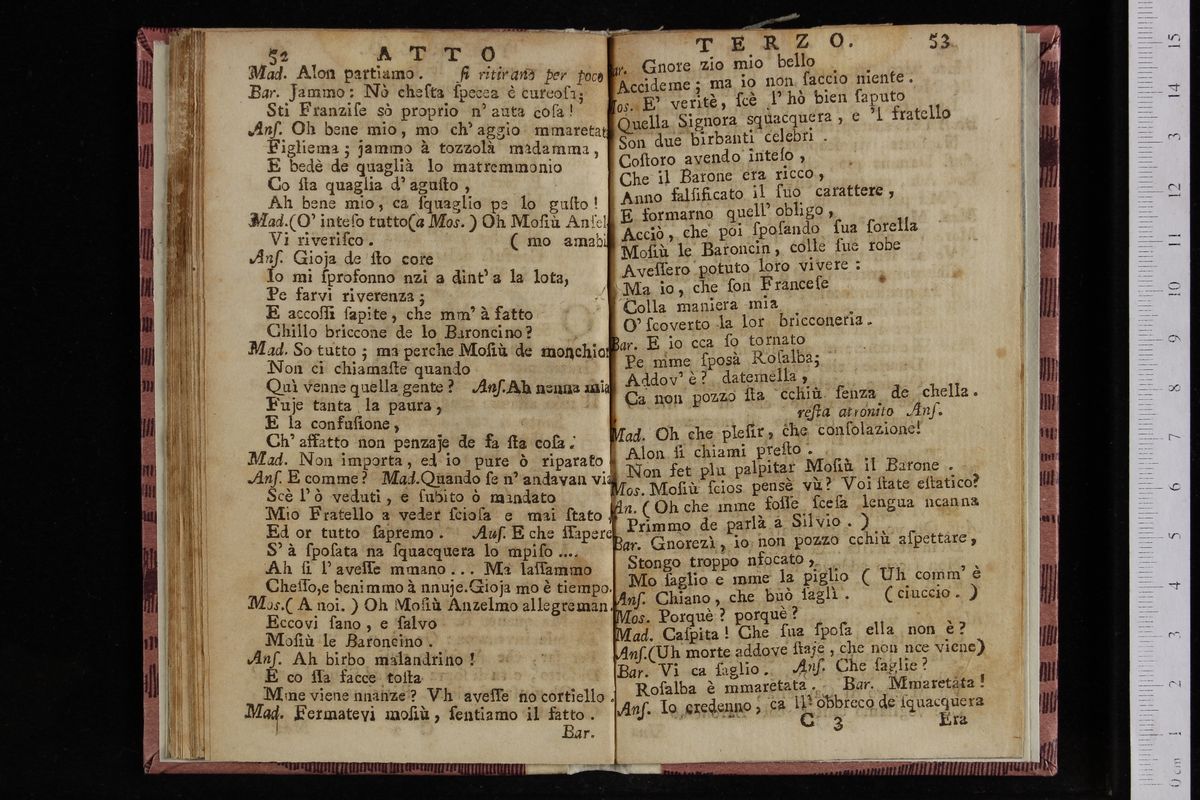 52 ATTO
Mad. Alon partiamo. ſi ritirano per poco
Bar. Jammo: Nò cheſta ſpecea è cureoſa;
Sti Franziſe sò proprio n' auta coſa!
Anſ. Oh bene mio, mo ch' aggio mmaretat
Figliema; jammo à tozzolà madamma,
E bedè de quaglià lo matremmonio
Co ſta quaglia d' aguſto,
Ah bene mio, ca ſquaglio pe lo guſto!
Mad. (O' inteſo tutto (a Mos.) Oh Moſiù Anſel
Vi riveriſco. ( mo amabi
Anſ. Gioja de ſto core
Io mi ſprofonno nzi a dint' a la lota,
Pe farvi riverenza;
E accoſſi ſapite, che mm' à fatto
Chillo briccone de lo Baroncino?
Mad. So tutto; ma perche Moſiù de monchior
Non ci chiamaſte quando
Quì venne quella gente? Anſ. Ah nenna mia
Fuje tanta la paura,
E la confuſione,
Ch' affatto non penzaje de fa ſta coſa.
Mad. Non importa, ed io pure ò riparato
Anſ. E comme? Mad. Quando ſe n' andavan via
Scè l' ò veduti, e ſubito ò mandato
Mio Fratello a veder ſcioſa e mai ſtato,
Ed or tutto ſapremo. Auſ. E che ſſapere
S' à ſpoſata na ſquacquera lo mpiſo ....
Ah ſi l' aveſſe mmano... Ma laſſammo
Cheſſo, e benimmo à nnuje. Gioja mo è tiempo.
Mos. ( A noi. ) Oh Moſiù Anzelmo allegreman.
Eccovi ſano, e ſalvo
Moſiù le Baroncino.
Anſ. Ah birbo malandrino!
E co ſſa facce toſta
Mme viene nnanze? Vh aveſſe no cortiello.
Mad. Fermatevi moſiù, ſentiamo il fatto.
Bar.
TERZO. 53
ar. Gnore zio mio bello
Accideme; ma io non faccio niente.
Mos. E' veritè, ſcè l' hò bien ſaputo
Quella Signora squacquera, e 'l fratello
Son due birbanti celebri.
Coſtoro avendo inteſo,
Che il Barone era ricco,
Anno falſificato il ſuo carattere,
E formarno quell' obligo,
Acciò, che poi ſpoſando ſua ſorella
Moſiù le Baroncin, colle ſue robe
Aveſſero potuto loro vivere:
Ma io, che ſon Franceſe
Colla maniera mia
O' ſcoverto la lor bricconeria.
Bar. E io cca ſo tornato
Pe mme ſposà Roſalba;
Addov' è? datemella,
Ca non pozzo ſta cchiù ſenza de chella.
reſta attonito Anſ.
Mad. Oh che pleſir, che conſolazione!
Alon ſi chiami preſto.
Non fet plu palpitar Moſiù il Barone.
Mos. Moſiù ſcios pensè vù? Voi ſtate eſtatico?
An. ( Oh che mme foſſe ſceſa lengua ncanna
Primmo de parlà a Silvio. )
Bar. Gnorezì, io non pozzo cchiù aſpettare,
Stongo troppo nfocato,
Mo ſaglio e mme la piglio ( Uh comm' è
Anſ. Chiano, che buò ſaglì. ( ciuccio. )
Mos. Porquè? porquè?
Mad. Caſpita! Che ſua ſpoſa ella non è?
Anſ. (Uh morte addove ſtaje, che non nce viene)
Bar. Vi ca ſaglio. Anſ. Che ſaglie?
Roſalba è mmaretata. Bar. Mmaretata!
Anſ. Io credenno, ca ll' obbreco de ſquacquera
C 3 Era